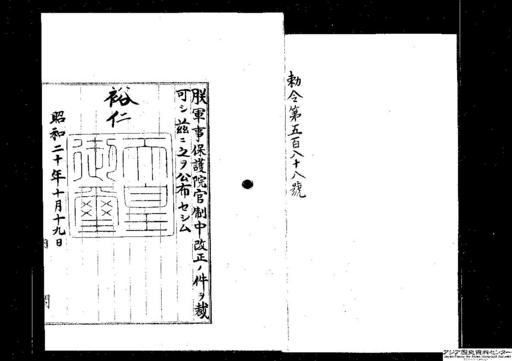 勅令第五百八十八號
朕軍事保護院官制中改正ノ件ヲ裁
可シ茲ニ之ヲ公布セシム
裕仁
天皇御璽
昭和二十年十月十九日
アジア歴史資料センター